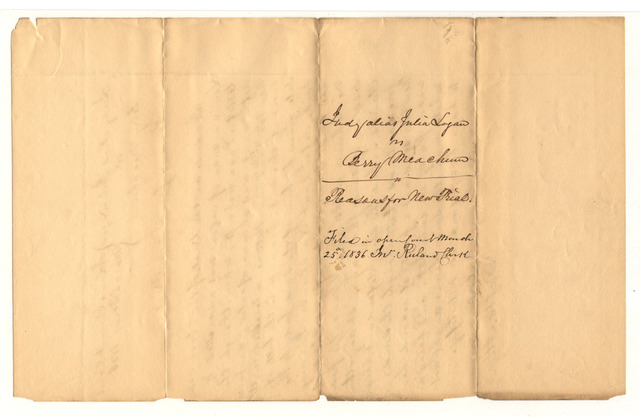 Judy alias Julia Logan
vs
Berry Meachum
Reasons for New Trial.
Filed in open Court March
25th 1836 Jno. Ruland Clerk